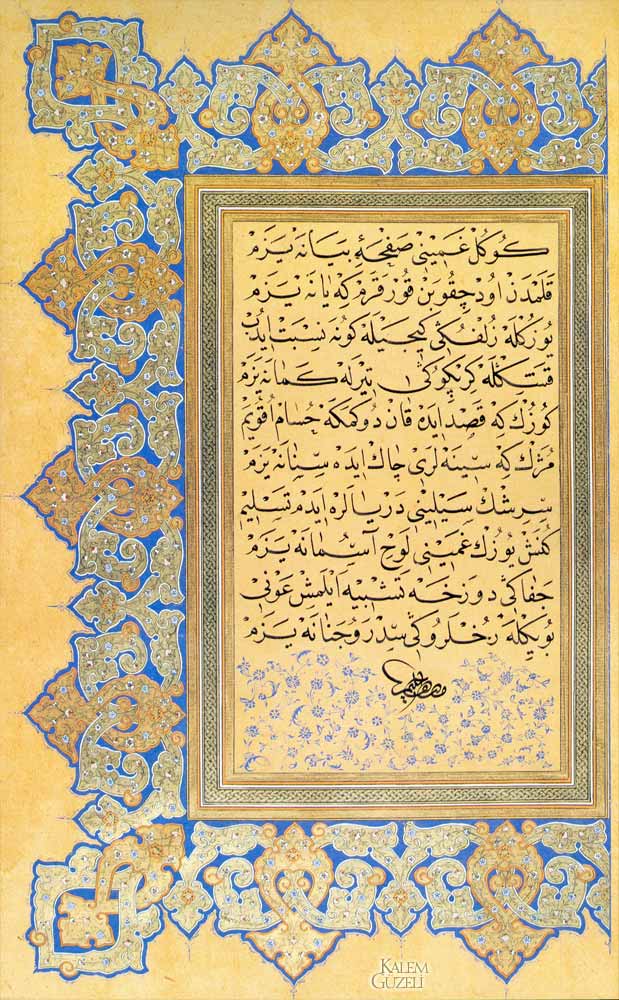 كوكل غمینی صفحهٔ بیانه یزم
قلمدن اود چقوبن قورقرم كه یانه یزم
یوزكله زلفكی كیجیله كونه نسبت ایدب
قشكله كرپكوكی تیرله كمانه یزم
كوزك كه قصد ایده قان دوكمكه حسام اقویم
مژك كه سینه لری چاك ایده سنانه یزم
سرشك سیلینی دریالره ایدم تسلیم
كنش یوزك غمینی لوح آسمانه یزم
جفاكی دوزخه تشبیه ایلمش عونی
بویكله رخلروكی سدر و جنانه یزم
KALEM
GÜZELİ